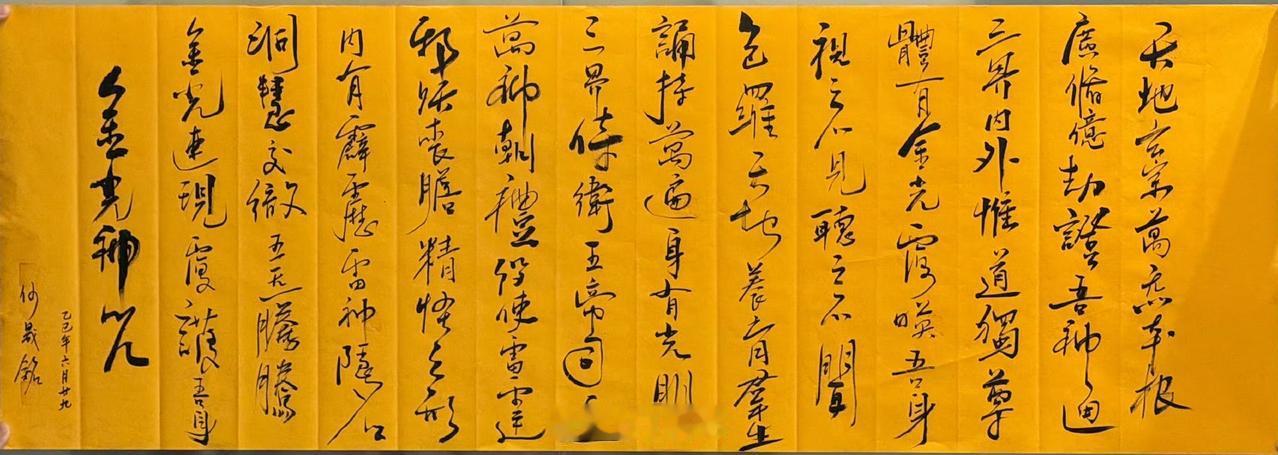 天地玄宗萬炁本根
廣脩億劫證吾神通
三界内外惟道獨尊
體有金光覆映吾身
視之不見聽之不聞
包羅天地養育羣生
誦持萬遍身有光明
三界侍衛五帝司迎
萬神朝禮役使雷霆
邪妖喪膽精怪亡形
内有霹靂雷神隱名
洞慧交徹五炁騰騰
金光速現覆護吾身
金光神咒
乙巳年六月廿九
何晟銘